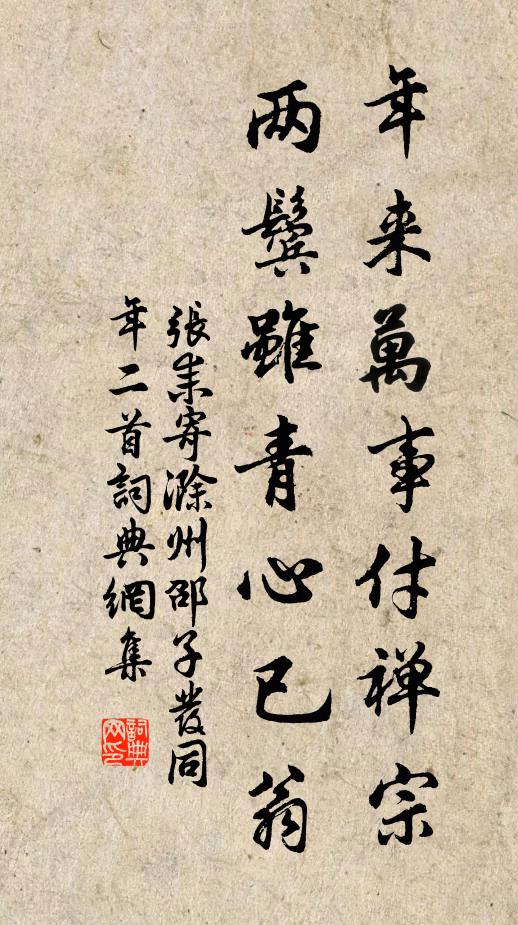 年来萬事付禅宗
两鬓雖青心已翁
張耒寄滁州邵子發同
年二首詞典網集
詞典網印